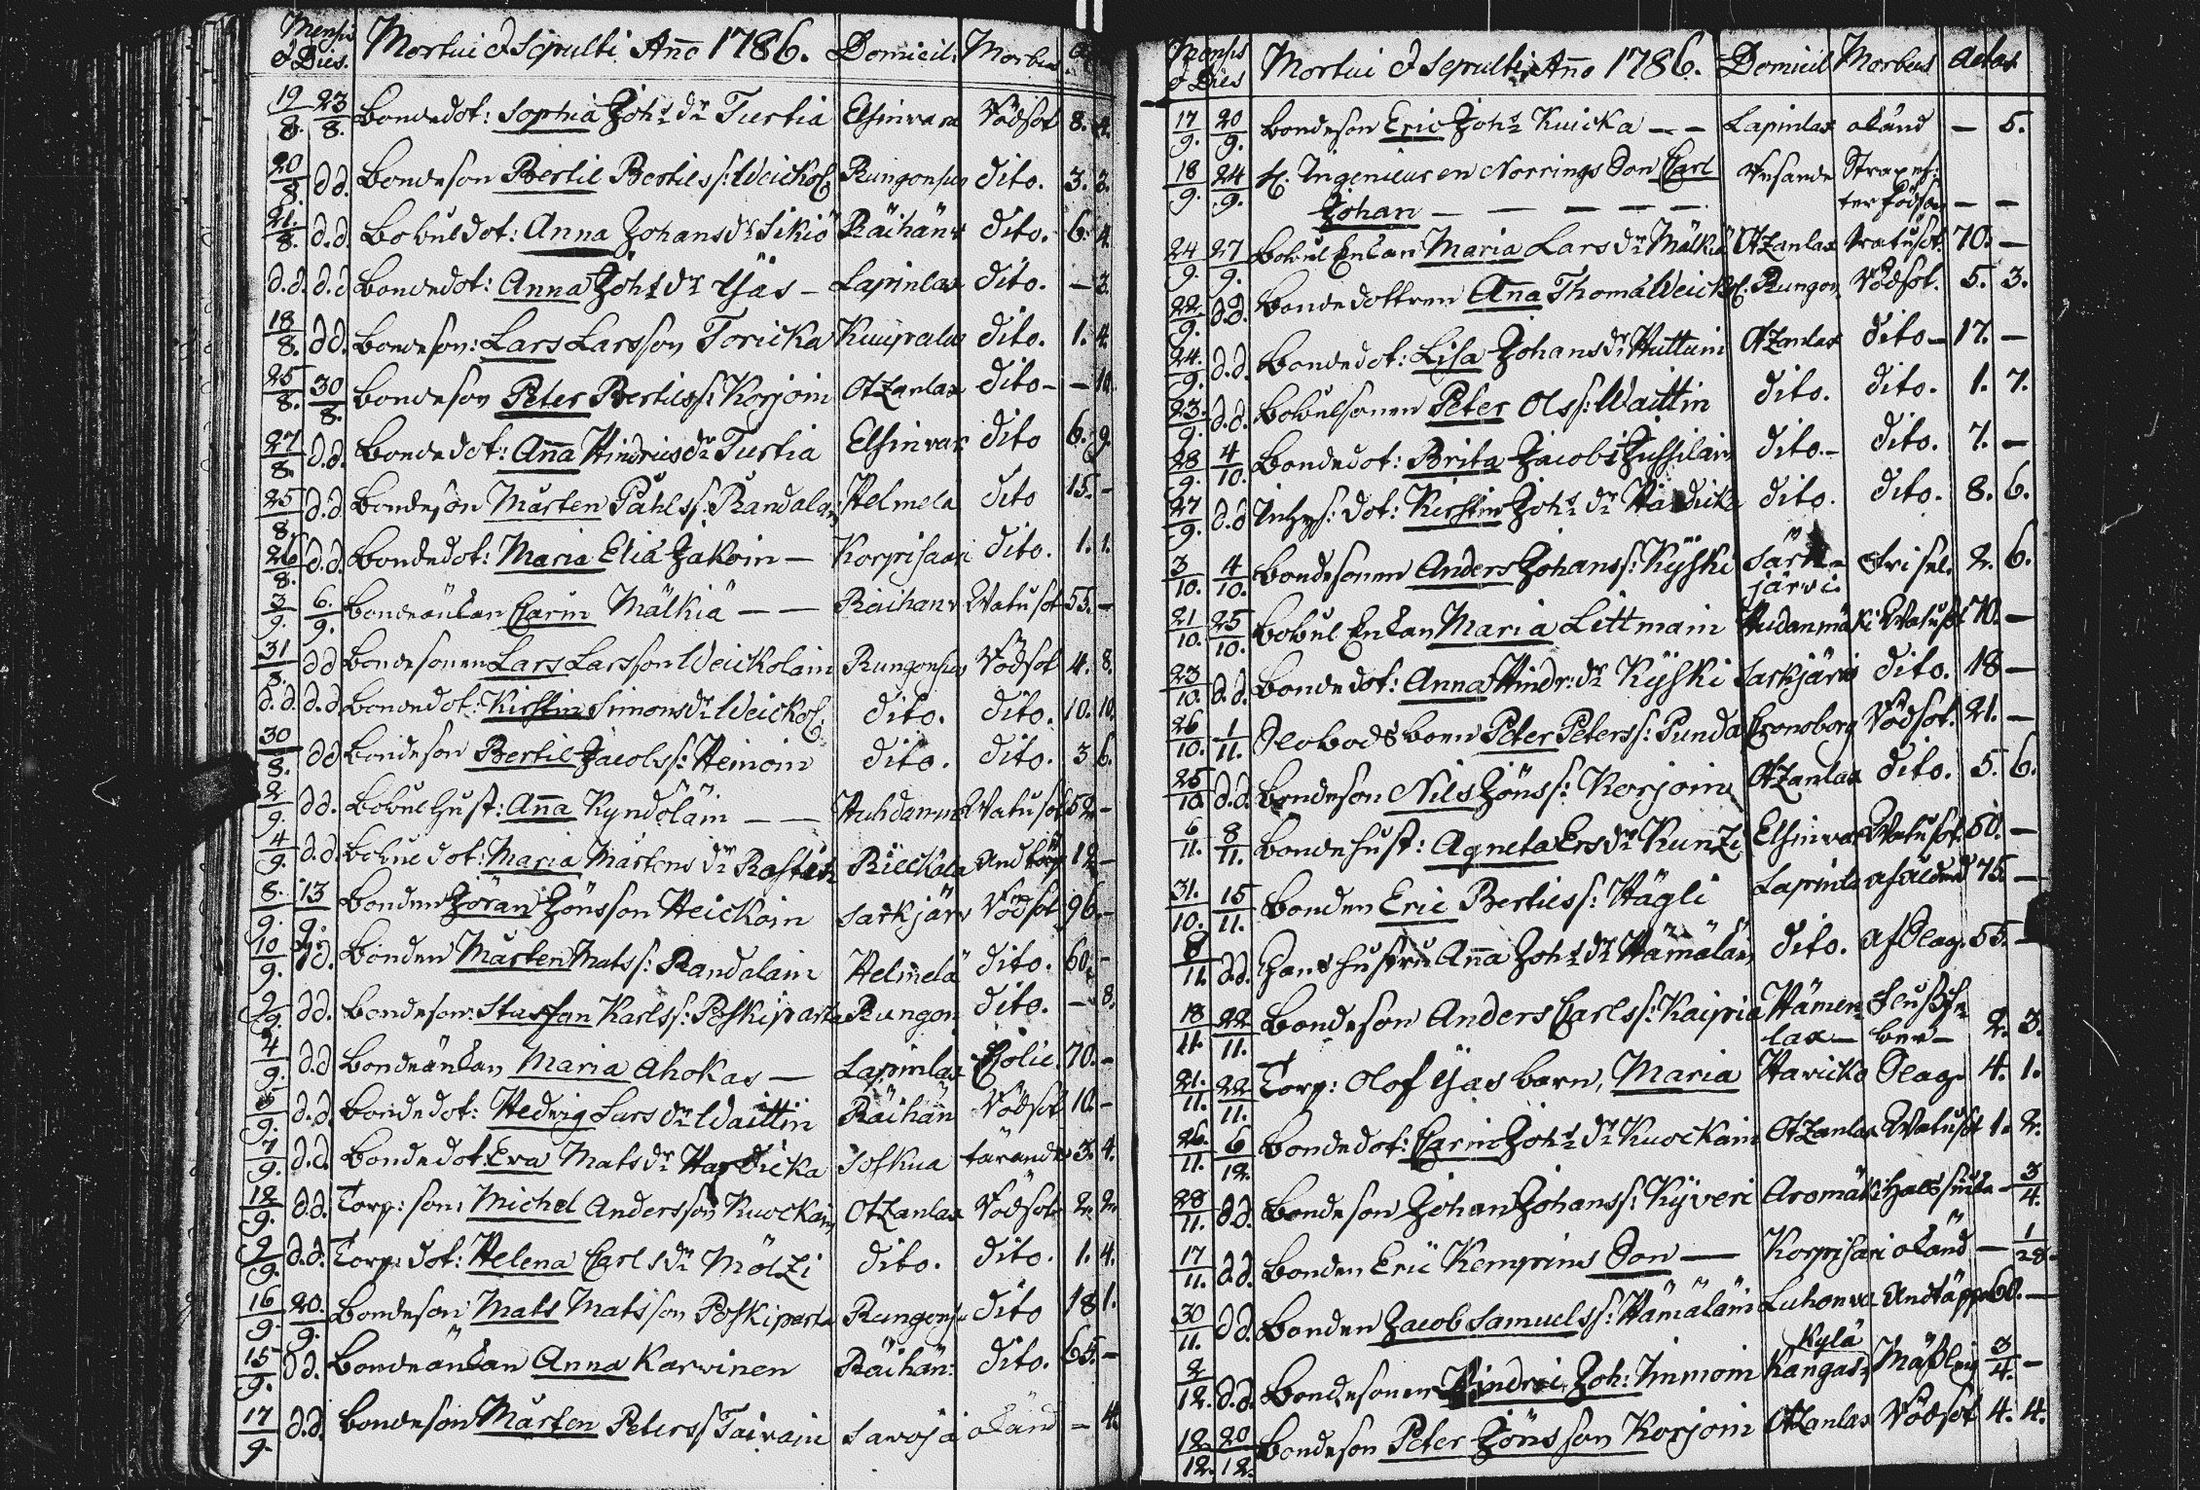 Mensis & Dies. Mortui & Sepulti Año 1786. Domicil: Morbus
19/8. 23/8. Bondedot: Sophia Joh:s dr Turtia Elsinvara Rödsot 8. 4.
20/8. dd. Bondeson Bertil Bertilss: Weickol: Rungonsuo dito. 3. 3.
21/8. d.d. Bobüldot: Anna Johans dr Sikiö Räihänv dito. 6. 4.
d.d. d.d Bondedot: Anna Joh:s dr Yjäs – Lapinlax dito. – 3.
18/8. dd. Bondeson: Lars Larsson Toricka Kuupalux dito. 1. 4.
25/8. 30/8. Bondeson Peter Bertilss: Korjoin Otzanlax dito – – 10.
27/8. d.d. Bondedot: Aña Hindrics dr Turtia Elsinvar dito 6. 9.
25/8. d.d. Bondeson Mårten Påhlss: Randalain Helmela dito 15. –
26/8. d.d. Bondedot: Maria Eliä Jakoin – Korpisaari dito. 1. 1.
3/9. 6./9. Bondeänkan Carin Mälkiä – – Räihänv Watusot 55. –
31/8. dd Bondesonen Lars Larsson Weickolain Rungonsuo Rödsot 4. 8.
d.d. d.d Bondedot: Kirstin Simons dr Weickol: dito. dito. 10. 10.
30/8. dd Bondeson Bertil Jacobss: Heinoin dito. dito. 3 6.
2/9. dd. Bobül hust: Aña Kyndöläin – – Huhdanm Watusot 52. –
4/9. d.d. Bobüldot: Maria Mårtens dr Rastas Rieckala Andtäp 12. –
8./9. 13/9. Bonden Jöran Jönsson Heickoin Särkjärv Rödsot 96. –
10/9. dd. Bonden Mårten Matss: Randalain Helmelä dito. 60. –
9/9. dd. Bondeson: Staffan Karlss: Poskiparta Rungon: dito. – 8.
4/9. d.d Bondeänkan Maria Ahokas – Lapinlax Colic. 70. –
5/9. d.d. Bondedot: Hedvig Lars dr Waittin Räihän Rödsot 10. –
7/9. d.d. Bondedot. Eva Mats dr Hardicka Soskua tärande 3. 4.
12/9. d.d. Torp: son: Michel Andersson Kuockain Otzanlax Rödsot 2. 2.
9/9. d.d. Torp: dot: Helena Carls dr Mölzi dito. dito. 1. 4.
16/9. 20./9. Bondeson: Mats Matsson Poskiparta Rungonsu dito 18 1.
15/9. dd. Bondeänkan Anna Karvinen Räihän: dito. 65. –
17/9 d.d. Bondeson Mårten Peterss Taivain Savoja okänd – 4.
Mensis & Dies Mortui & Sepulti Año 1786. Domicil Morbus Aetas
17/9. 20/9. Bondeson Eric Joh:s Kuicka – – Lapinlax okänd – 5.
18/9. 24/9. H. Ingenieuren Norrings Son Carl Strax ef:
Johan – – – – – ter födsen – –
24/9. 27/9. Bobül Enkan Maria Lars dr Mälkiä Otzanlax Watusot. 70. –
22/9. d.d. Bondedottren Aña Thomä Weickol. Rungon. Rödsot. 5. 3.
24./9. d.d. Bondedot: Lisa Johans dr Huttuin Otzanlax dito – 17. –
23./9. d.d. Bobülsonen Peter Olss: Waittin dito. dito. 1. 7.
28/9. 4/10. Bondedot: Brita Jacobi Jussilain dito. – dito. 7. –
27/9. d.d Inhys: dot: Kirstin Joh:s dr Hardicka dito. dito. 8. 6.
3/10. 4/10. Bondesonen Anders Johanss: Kyski Särk- 2. 6.
järvi.
21/10. 25/10. Bobül Enkan Maria Littmain Hudanmäki Watusot 70. –
23/10. d.d. Bondedot: Anna Hindr: dr Kyski Särkjärv dito. 18 –
26/10. 1/11. Slobodsboen Peter Peterss: Punda Cronoborg Rödsot. 21. –
25/10. d.d. Bondeson Nils Jönss: Korjoin Otzanlax dito. 5. 6.
6/11. 8/11. Bondehust: Agneta Ers dr Kunzi Elsinvar Watusot 50. –
31./10. 15/11. Bonden Eric Bertilss: Hägli Lapinla af ålderd 75. –
8/11. d.d. Hans hustru Aña Joh:s dr Hämäläin dito. af Slag. 55. –
18/11. 22/11. Bondeson Anders Carlss: Kaipia Hämen- 2. 3.
lax –
21./11. 22/11. Torp: Olof Yjäs barn, Maria Haricko Slag. 4. 1.
26./11. 6/12. Bondedot: Carin Joh:s dr Kuockain Otzanlax Watusot 1. 2.
28/11. d.d. Bondeson Johan Johanss: Kyveri Aromäki Halssiuka – 3/4.
17/11. d.d. Bonden Eric Kemppins Son – Korpisari okänd – 1/28.
30/11. dd. Bonden Jacob Samuelss: Hämäläin Luhonva Andtäppa 60. –
Kylä
2/12. d.d. Bondesonen Hindric Joh: Immoin Kangas Mäßling 3/4. –
12./12. 20/12. Bondeson Peter Jönsson Korjoin Otzanlax Rödsot 4. 4.